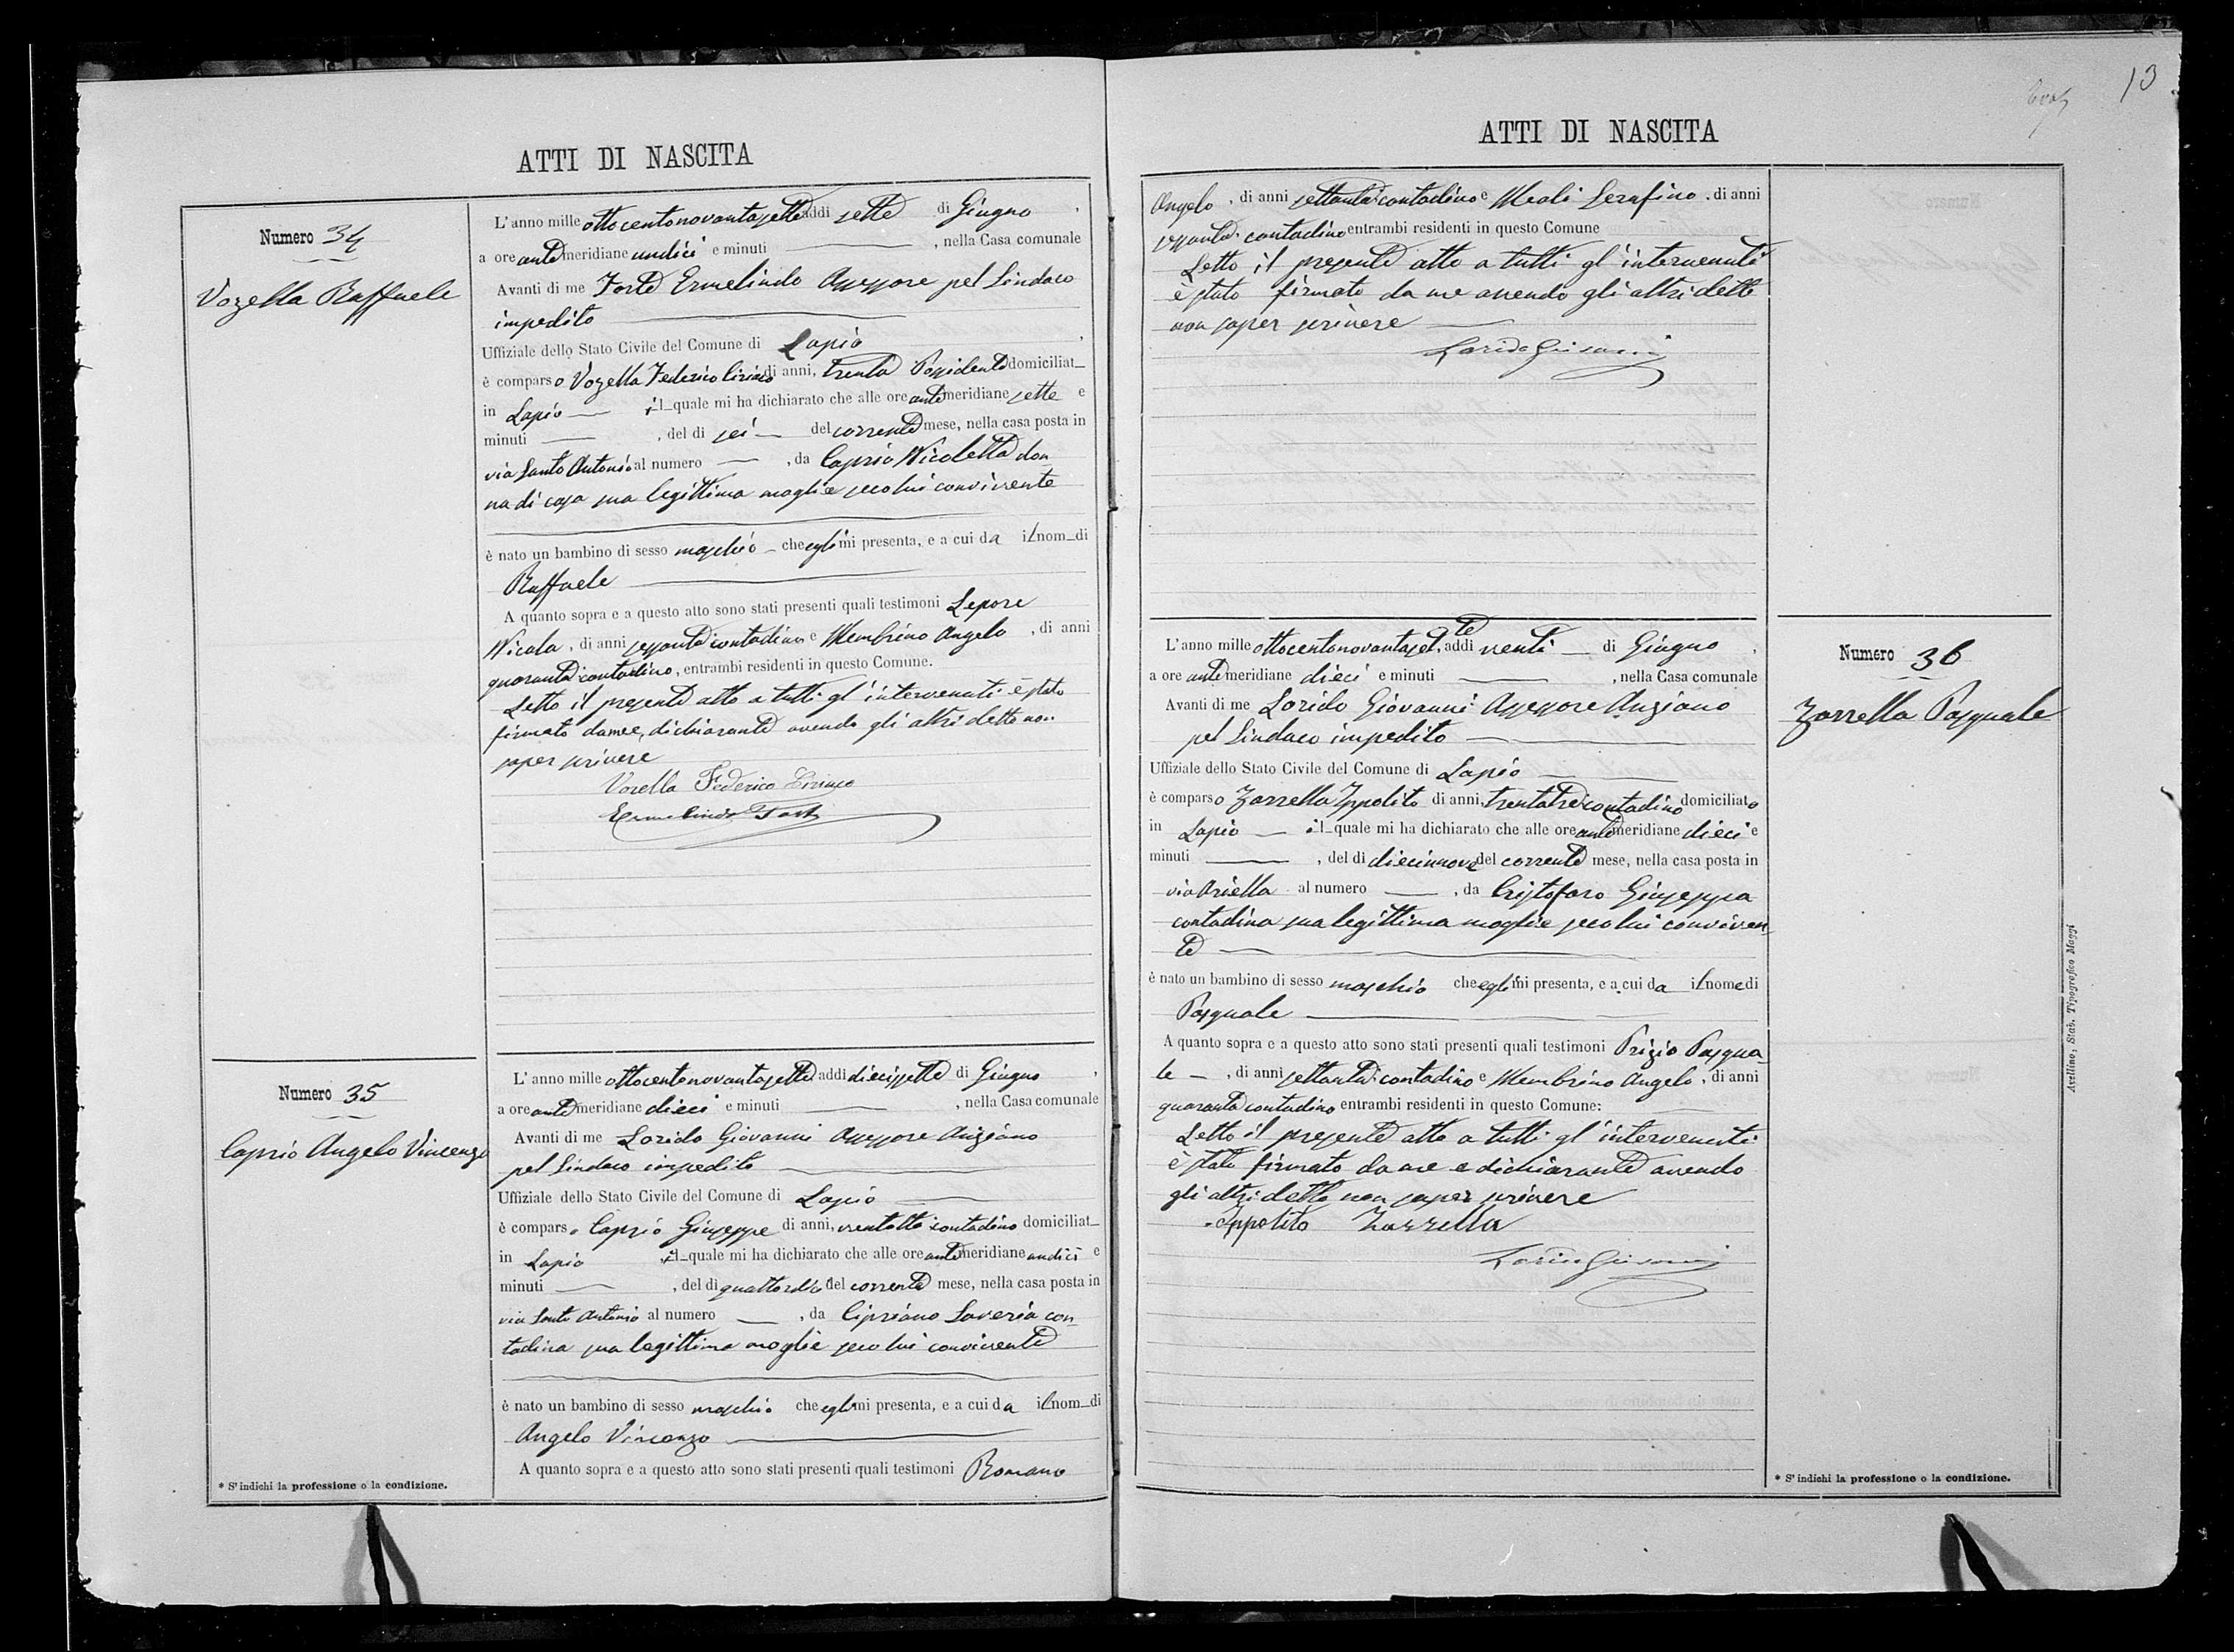 ATTI DI NASCITA
Numero 34
Vozella Raffaele
L'anno mille ottocentonovantasette addì sette di Giugno,
a ore antemeridiane undici e minuti , nella Casa comunale
Avanti di me Forte Ermelindo Assessore pel Sindaco
impedito
Uffiziale dello Stato Civile del Comune di Lapio,
è comparso Vozella Federico Ciriaco di anni, trenta Possidente domiciliat
in Lapio il quale mi ha dichiarato che alle ore antemeridiane sette e
minuti , del dì sei del corrente mese, nella casa posta in
via Santo Antonio al numero , da Caprio Nicoletta don
na di casa sua legittima moglie seco lui convivente
è nato un bambino di sesso maschio che egli mi presenta, e a cui da il nom di
Raffaele
A quanto sopra e a questo atto sono stati presenti quali testimoni Lepore
Nicola, di anni sessanta contadino e Membrino Angelo, di anni
quaranta contadino, entrambi residenti in questo Comune.
Letto il presente atto a tutti gl'intervenuti è stato
firmato da me e, dichiarante avendo gli altri detto non
saper scrivere
Vozella Federico Ciriaco
Ermelindo Forte
Numero 35
Caprio Angelo Vincenzo
L'anno mille ottocentonovantasette addì diecissette di Giugno,
a ore antemeridiane dieci e minuti , nella Casa comunale
Avanti di me Lorido Giovanni Assessore Anziano
pel Sindaco impedito
Uffiziale dello Stato Civile del Comune di Lapio
è comparso Caprio Giuseppe di anni, ventotto contadino domiciliat
in Lapio il quale mi ha dichiarato che alle ore antemeridiane undici e
minuti , del dì quattordici del corrente mese, nella casa posta in
via Santo Antonio al numero , da Cipriano Saveria con
tadina sua legittima moglie seco lui convivente
è nato un bambino di sesso maschio che egli mi presenta, e a cui da il nom di
Angelo Vincenzo
A quanto sopra e a questo atto sono stati presenti quali testimoni Romano
* S'indichi la professione o la condizione.
13
ATTI DI NASCITA
Angelo, di anni settanta contadino e Meoli Serafino, di anni
sessanta contadino entrambi residenti in questo Comune
Letto il presente atto a tutti gl'intervenuti
è stato firmato da me avendo gli altri detto
non saper scrivere
Lorido Giovanni
Numero 36
Zarrella Pasquale
L'anno mille ottocentonovantasette, addì venti di Giugno,
a ore antemeridiane dieci e minuti , nella Casa comunale
Avanti di me Lorido Giovanni Assessore Anziano
pel Sindaco impedito
Uffiziale dello Stato Civile del Comune di Lapio
è comparso Zarrella Ippolito di anni, trentatre contadino domiciliato
in Lapio il quale mi ha dichiarato che alle ore antemeridiane dieci e
minuti , del dì diecinnove del corrente mese, nella casa posta in
via Ariella al numero , da Cristofaro Giuseppa
contadina sua legittima moglie seco lui conviven
te
è nato un bambino di sesso maschio che egli mi presenta, e a cui da il nome di
Pasquale
A quanto sopra e a questo atto sono stati presenti quali testimoni Prizio Pasqua
le , di anni settanta contadino e Membrino Angelo, di anni
quaranta contadino entrambi residenti in questo Comune:
Letto il presente atto a tutti gl'intervenuti
è stato firmato da me e dichiarante avendo
gli altri detto non saper scrivere
Ippolito Zarrella
Lorido Giovanni
* S'indichi la professione o la condizione.
Avellino, Stab. Tipografico Maggi